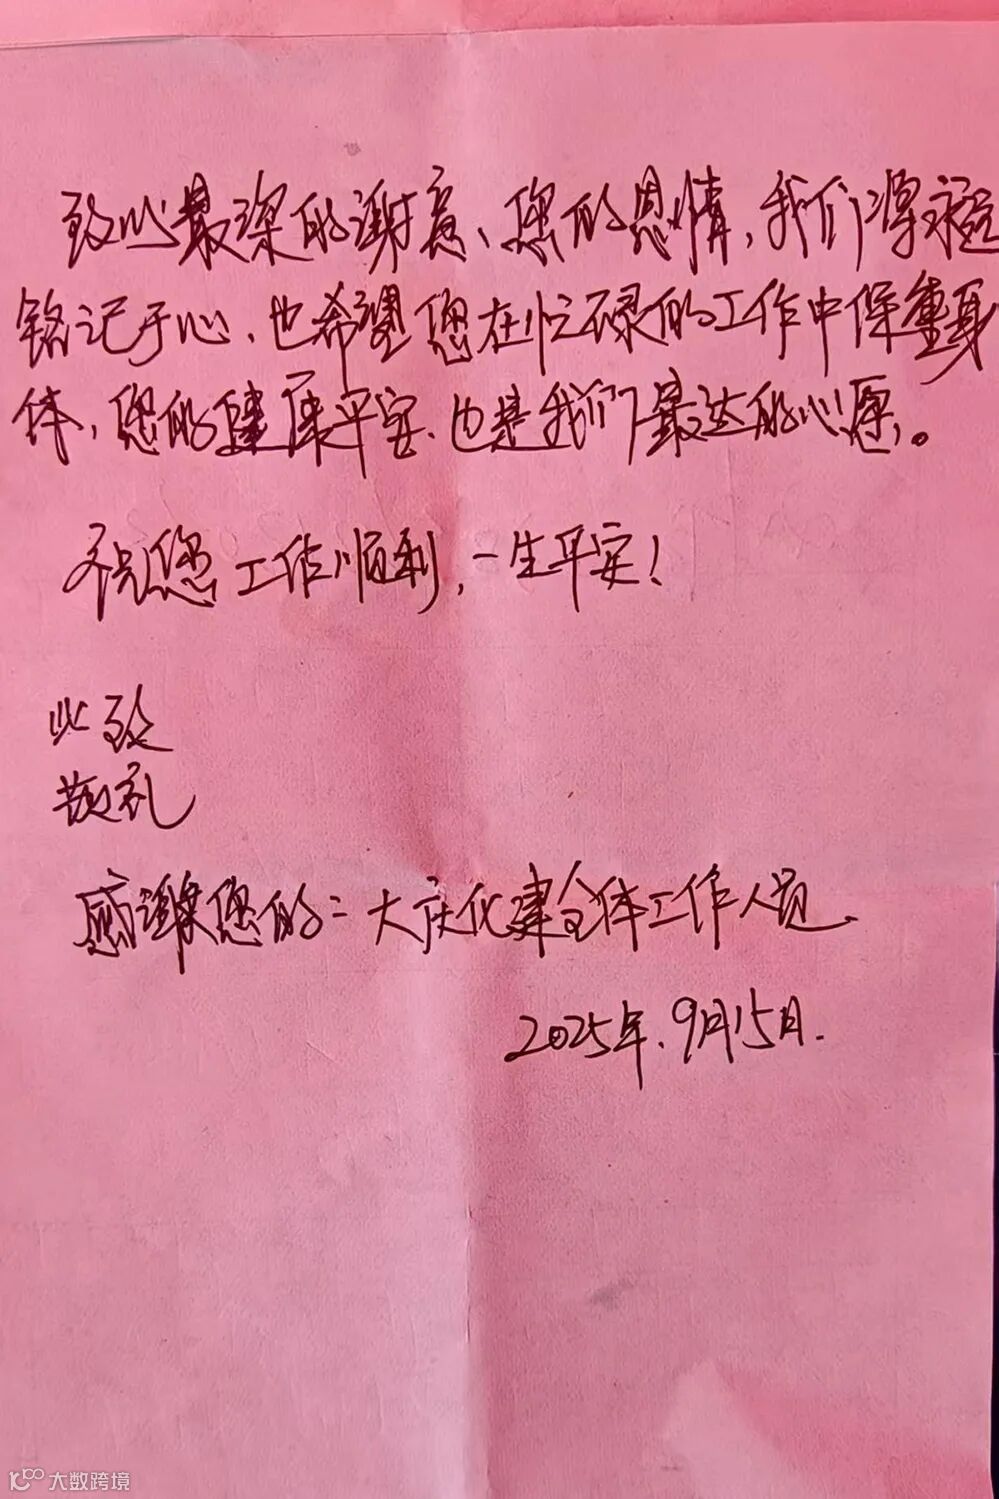 致以最深的谢意、您的恩情,我们将永远
铭记于心、也希望您在忙碌的工作中保重身
体,您的健康平安、也是我们最大的心愿。
祝您工作顺利,一生平安!
此致
敬礼
感谢您的:大庆化建全体工作人员.
2025年.9月15日.
大数跨境